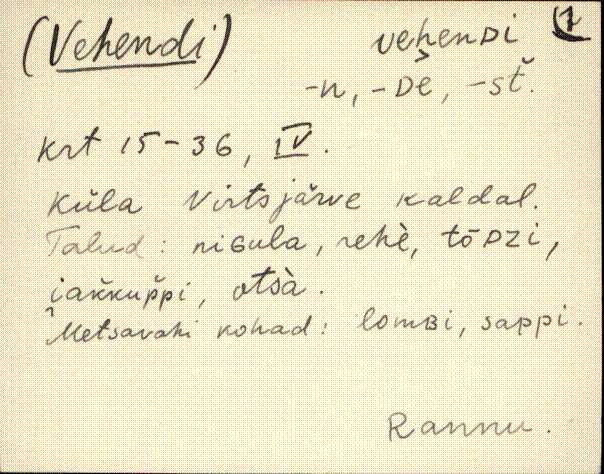 (Vehendi) vehenDi 1
-n, -Dè, -st̆.
krt 15-36, IV.
Küla Virtsjärve kaldal.
Talud: niGula, rehè, tōDzi,
i̯ak̆kup̆pi, otsà.
Metsavahi kohad: lomBi, sappi.
Rannu.